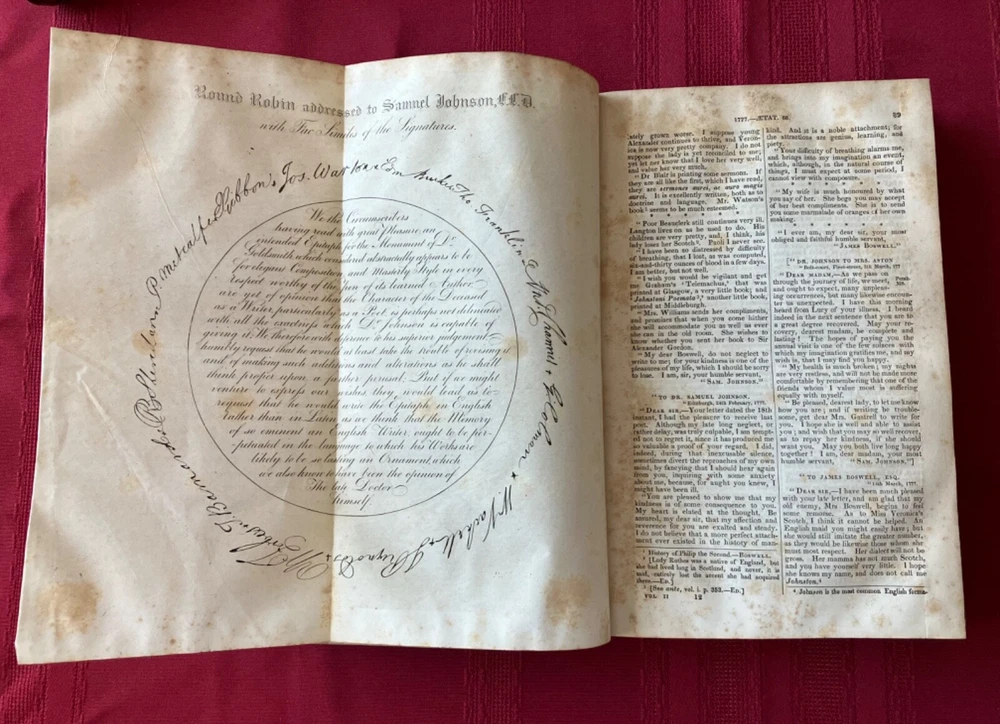 Round Robin addressed to Samuel Johnson, L.L.D.
with Fac Similes of the Signatures.
Gibbon
Jos. Warton
Edm Burke
Tho Franklin
Ant Chamier
G Colman
Wm Vachell
J Reynolds
W Forbes
T Barnard
R B Sheridan
P Metcalfe
We the Circumscribers
having read with great Pleasure, an
intended Epitaph for the Monument of Dr
Goldsmith which considered abstractedly appears to be
for elegant Composition and Masterly Style in every
respect worthy of the Pen of its learned Author,
are yet of opinion that the Character of the Deceased
as a Writer, particularly as a Poet is perhaps not delineated
with all the exactness which Dr Johnson is capable of
giving it. We therefore with deference to his superior judgement
humbly request that he would at least take the trouble of revising it
and of making such additions and alterations as he shall
think proper upon a farther perusal: But if we might
venture to express our wishes they would lead us to
request that he would write the Epitaph in English
rather than in Latin as we think that the Memory
of so eminent an English Writer, ought to be per-
petuated in the Language to which his Works are
likely to be so lasting an Ornament, which
we also know to have been the opinion of
The late Doctor
himself
1777.—ÆTAT. 68. 89
lately grown worse. I suppose young
Alexander continues to thrive, and Veron-
ica is now very pretty company. I do not
suppose the lady is yet reconciled to me;
yet let her know that I love her very well,
and value her very much.
"Dr Blair is printing some sermons. If
they are all like the first, which I have read,
they are sermones aurei, ac auro magis
aurei. It is excellently written, both as to
doctrine and language. Mr. Watson's
book¹ seems to be much esteemed.
* * * * * *
"Poor Beauclerk still continues very ill.
Langton lives on as he used to do. His
children are very pretty, and, I think, his
lady loses her Scotch². Paoli I never see.
"I have been so distressed by difficulty
of breathing, that I lost, as was computed,
six-and-thirty ounces of blood in a few days.
I am better, but not well.
"I wish you would be vigilant and get
me Graham's 'Telemachus,' that was
printed at Glasgow, a very little book; and
'Johnstoni Poemata³,' another little book,
printed at Middleburgh.
"Mrs. Williams sends her compliments,
and promises that when you come hither
she will accommodate you as well as ever
she can in the old room. She wishes to
know whether you sent her book to Sir
Alexander Gordon.
"My dear Boswell, do not neglect to
write to me; for your kindness is one of the
pleasures of my life, which I should be sorry
to lose. I am, sir, your humble servant,
"SAM. JOHNSON."
"TO DR. SAMUEL JOHNSON.
"Edinburgh, 24th February, 1777.
"DEAR SIR,—Your letter dated the 18th
instant, I had the pleasure to receive last
post. Although my late long neglect, or
rather delay, was truly culpable, I am tempt-
ed not to regret it, since it has produced me
so valuable a proof of your regard. I did,
indeed, during that inexcusable silence,
sometimes divert the reproaches of my own
mind, by fancying that I should hear again
from you, inquiring with some anxiety
about me, because, for aught you knew, I
might have been ill.
"You are pleased to show me that my
kindness is of some consequence to you.
My heart is elated at the thought. Be
assured, my dear sir, that my affection and
reverence for you are exalted and steady.
I do not believe that a more perfect attach-
ment ever existed in the history of man-
¹ History of Philip the Second.—BOSWELL.
² [Lady Rothes was a native of England, but
she had lived long in Scotland, and never, it is
said, entirely lost the accent she had acquired
there.—ED.]
³ [See ante, vol. i. p. 323.—ED.]
VOL. II 12
kind. And it is a noble attachment; for
the attractions are genius, learning, and
piety.
"Your difficulty of breathing alarms me,
and brings into my imagination an event,
which, although, in the natural course of
things, I must expect at some period, I
cannot view with composure.
* * * * * *
"My wife is much honoured by what
you say of her. She begs you may accept
of her best compliments. She is to send
you some marmalade of oranges of her own
making.
* * * * * *
"I ever am, my dear sir, your most
obliged and faithful humble servant,
"JAMES BOSWELL."
["DR. JOHNSON TO MRS. ASTON
"Bolt-court, Fleet-street, 8th March, 177
"DEAR MADAM,—As we pass on
through the journey of life, we meet,
and ought to expect, many unpleas-
ing occurrences, but many likewise encoun-
ter us unexpected. I have this morning
heard from Lucy of your illness. I heard
indeed in the next sentence that you are to
a great degree recovered. May your re-
covery, dearest madam, be complete and
lasting! The hopes of paying you the
annual visit is one of the few solaces with
which my imagination gratifies me, and my
wish is, that I may find you happy.
"My health is much broken; my nights
are very restless, and will not be made more
comfortable by remembering that one of the
friends whom I value most is suffering
equally with myself.
"Be pleased, dearest lady, to let me know
how you are; and if writing be trouble-
some, get dear Mrs. Gastrell to write for
you. I hope she is well and able to assist
you; and wish that you may so well recover,
as to repay her kindness, if she should
want you. May you both live long happy
together! I am, dear madam, your most
humble servant, "SAM. JOHNSON."]
"TO JAMES BOSWELL, ESQ.
"14th March, 177
"DEAR SIR,—I have been much pleased
with your late letter, and am glad that my
old enemy, Mrs. Boswell, begins to feel
some remorse. As to Miss Veronica's
Scotch, I think it cannot be helped. An
English maid you might easily have; but
she would still imitate the greater number,
as they would be likewise those whom she
must most respect. Her dialect will not be
gross. Her mamma has not much Scotch,
and you have yourself very little. I hope
she knows my name, and does not call me
Johnston.⁴
⁴ Johnson is the most common English forma-